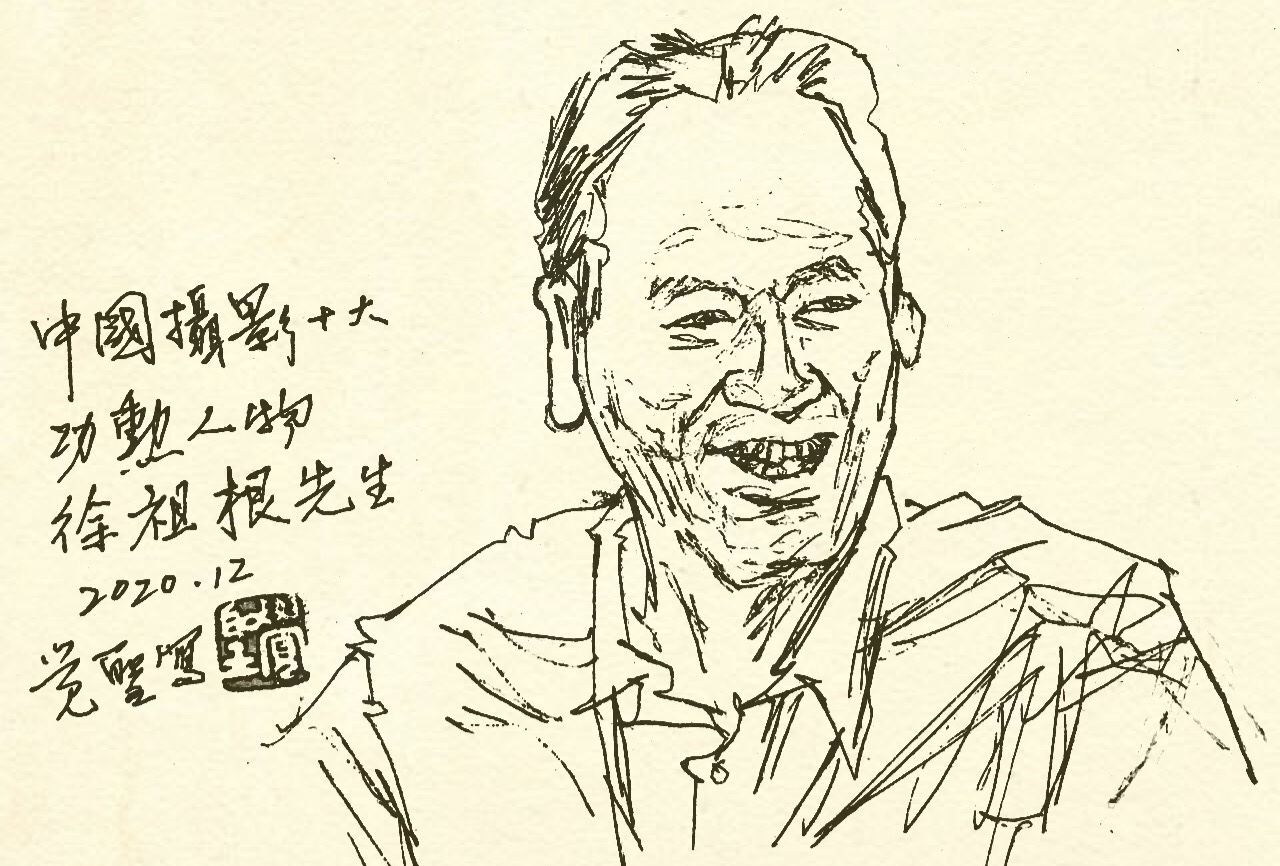 中國攝影十大
功勲人物
徐祖根先生
2020.12
覚聖寫